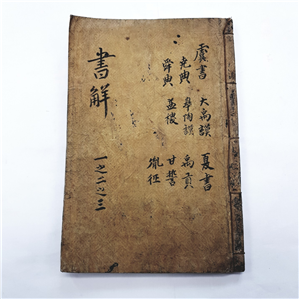 虞書
大禹謨
堯典
皐陶謨
舜典
益稷
夏書
禹貢
甘誓
胤征
書解
一之二之三